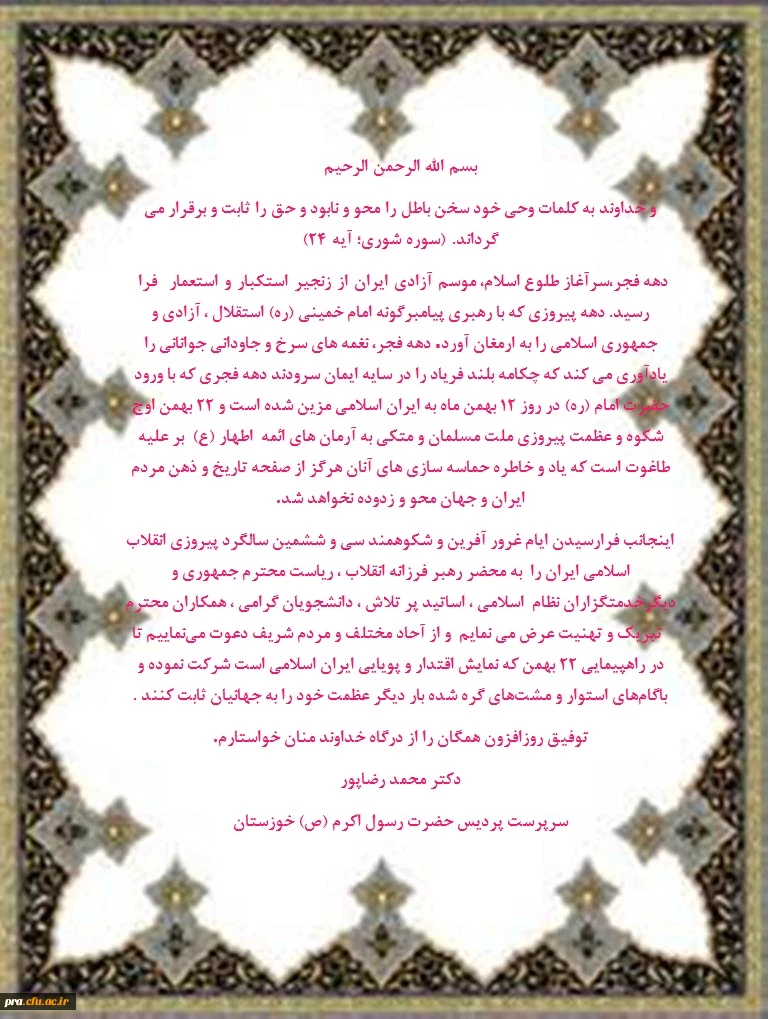 بسم الله الرحمن الرحیم
و خداوند به کلمات وحی خود سخن باطل را محو و نابود و حق را ثابت و برقرار می
گرداند. (سوره شوری؛ آیه ۲۴)
دهه فجر،سرآغاز طلوع اسلام، موسم آزادی ایران از زنجیر استکبار و استعمار فرا
رسید. دهه پیروزی که با رهبری پیامبرگونه امام خمینی (ره) استقلال ، آزادی و
جمهوری اسلامی را به ارمغان آورد. دهه فجر، نغمه های سرخ و جاودانی جوانانی را
یادآوری می کند که چکامه بلند فریاد را در سایه ایمان سرودند دهه فجری که با ورود
حضرت امام (ره) در روز ۱۲ بهمن ماه به ایران اسلامی مزین شده است و ۲۲ بهمن اوج
شکوه و عظمت پیروزی ملت مسلمان و متکی به آرمان های ائمه اطهار (ع) بر علیه
طاغوت است که یاد و خاطره حماسه سازی های آنان هرگز از صفحه تاریخ و ذهن مردم
ایران و جهان محو و زدوده نخواهد شد.
اینجانب فرارسیدن ایام غرور آفرین و شکوهمند سی و ششمین سالگرد پیروزی انقلاب
اسلامی ایران را به محضر رهبر فرزانه انقلاب ، ریاست محترم جمهوری و
دیگرخدمتگزاران نظام اسلامی ، اساتید پر تلاش ، دانشجویان گرامی ، همکاران محترم
تبریک و تهنیت عرض می نمایم و از آحاد مختلف و مردم شریف دعوت می‌نماییم تا
در راهپیمایی ۲۲ بهمن که نمایش اقتدار و پویایی ایران اسلامی است شرکت نموده و
باگام‌های استوار و مشت‌های گره شده بار دیگر عظمت خود را به جهانیان ثابت کنند .
توفیق روزافزون همگان را از درگاه خداوند منان خواستارم.
دکتر محمد رضاپور
سرپرست پردیس حضرت رسول اکرم (ص) خوزستان
pra.cfu.ac.ir